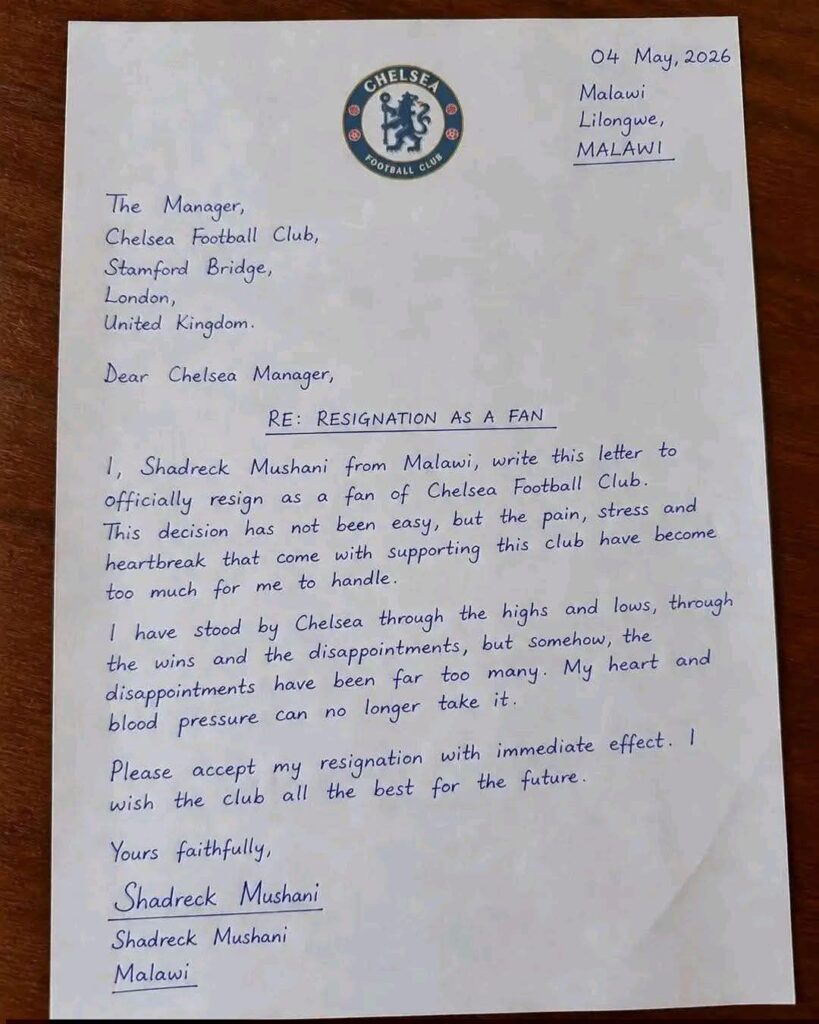 CHELSEA
FOOTBALL CLUB
04 May, 2026
Malawi
Lilongwe,
MALAWI
The Manager,
Chelsea Football Club,
Stamford Bridge,
London,
United Kingdom.
Dear Chelsea Manager,
RE: RESIGNATION AS A FAN
I, Shadreck Mushani from Malawi, write this letter to
officially resign as a fan of Chelsea Football Club.
This decision has not been easy, but the pain, stress and
heartbreak that come with supporting this club have become
too much for me to handle.
I have stood by Chelsea through the highs and lows, through
the wins and the disappointments, but somehow, the
disappointments have been far too many. My heart and
blood pressure can no longer take it.
Please accept my resignation with immediate effect. I
wish the club all the best for the future.
Yours faithfully,
Shadreck Mushani
Shadreck Mushani
Malawi